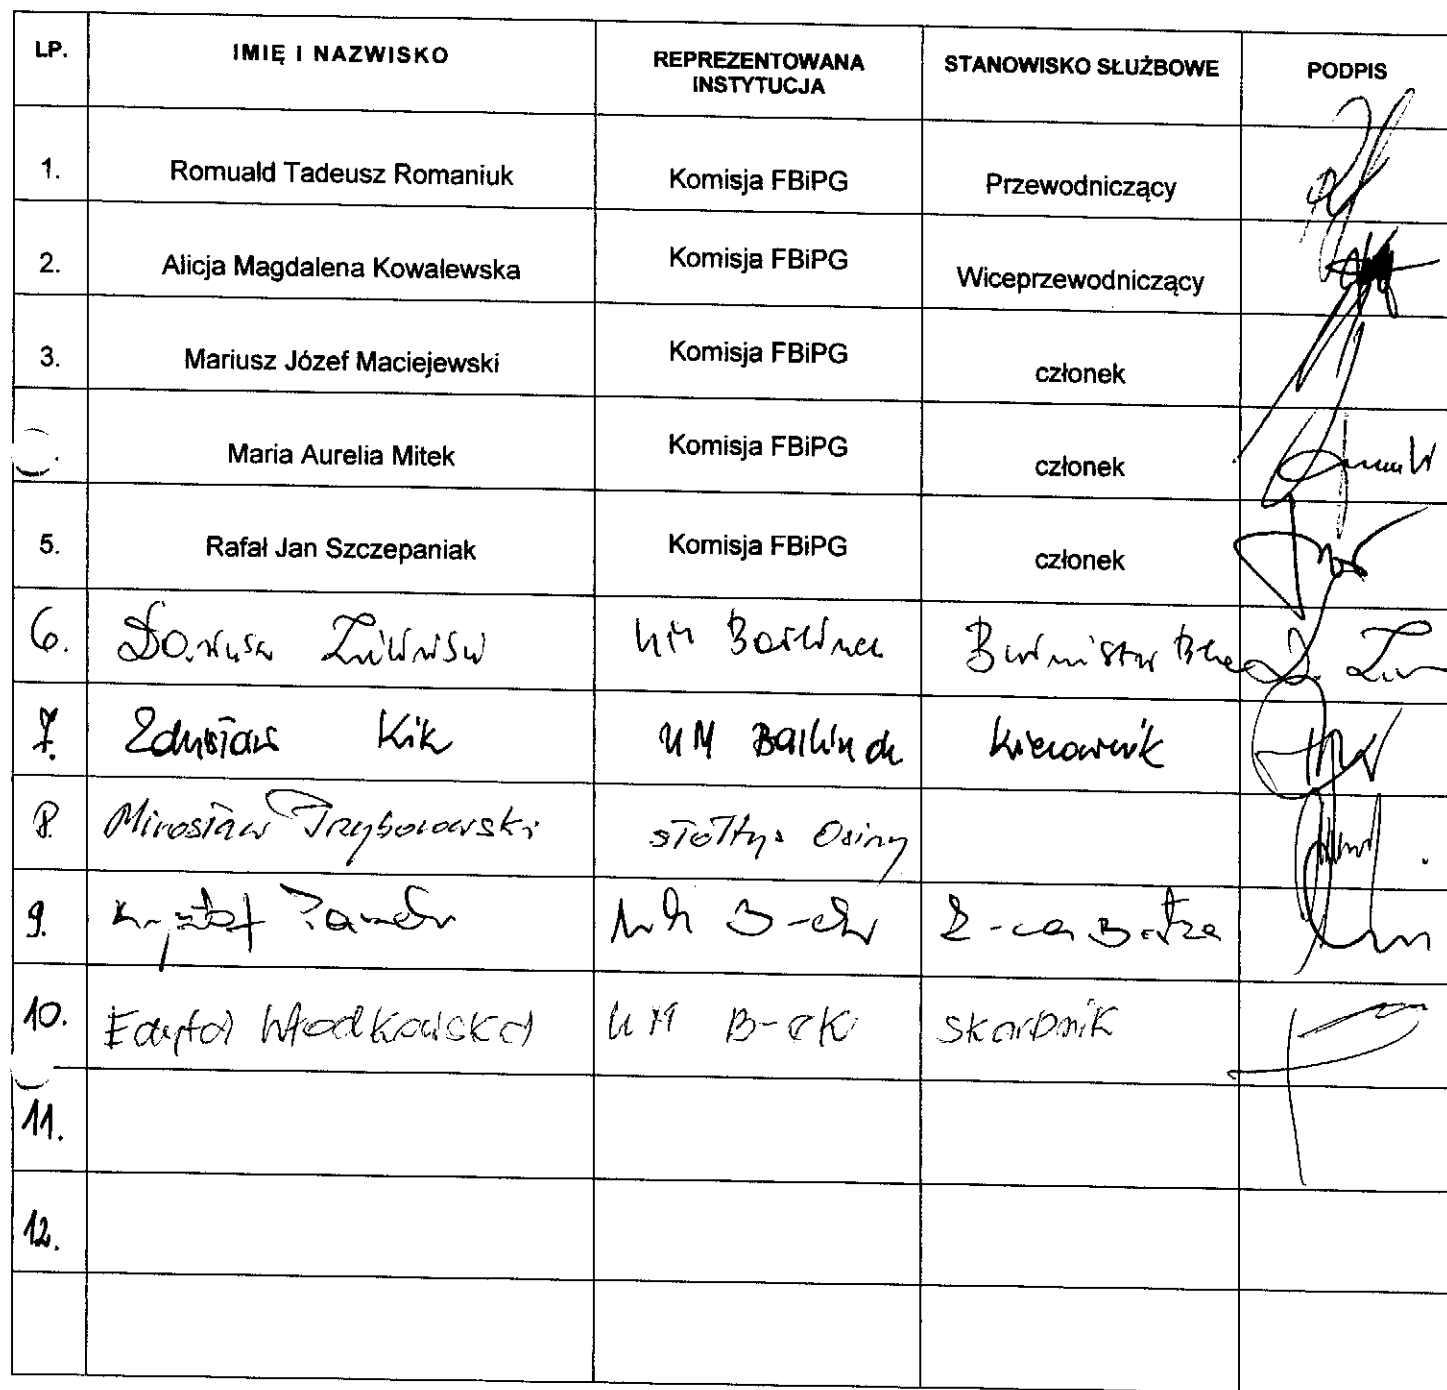 LP. IMIĘ I NAZWISKO REPREZENTOWANA INSTYTUCJA STANOWISKO SŁUŻBOWE PODPIS
1. Romuald Tadeusz Romaniuk Komisja FBiPG Przewodniczący
2. Alicja Magdalena Kowalewska Komisja FBiPG Wiceprzewodniczący
3. Mariusz Józef Maciejewski Komisja FBiPG członek
Maria Aurelia Mitek Komisja FBiPG członek
5. Rafał Jan Szczepaniak Komisja FBiPG członek
6. Dariusz UM Barlinek Burmistrz
7. Zdzisław Kik UM Barlinek Kierownik
8. Mirosław sołtys Osiny
9. Krzysztof Z-ca B-trza
10. Edyta Włodkowska UM B-ek Skarbnik
11.
12.